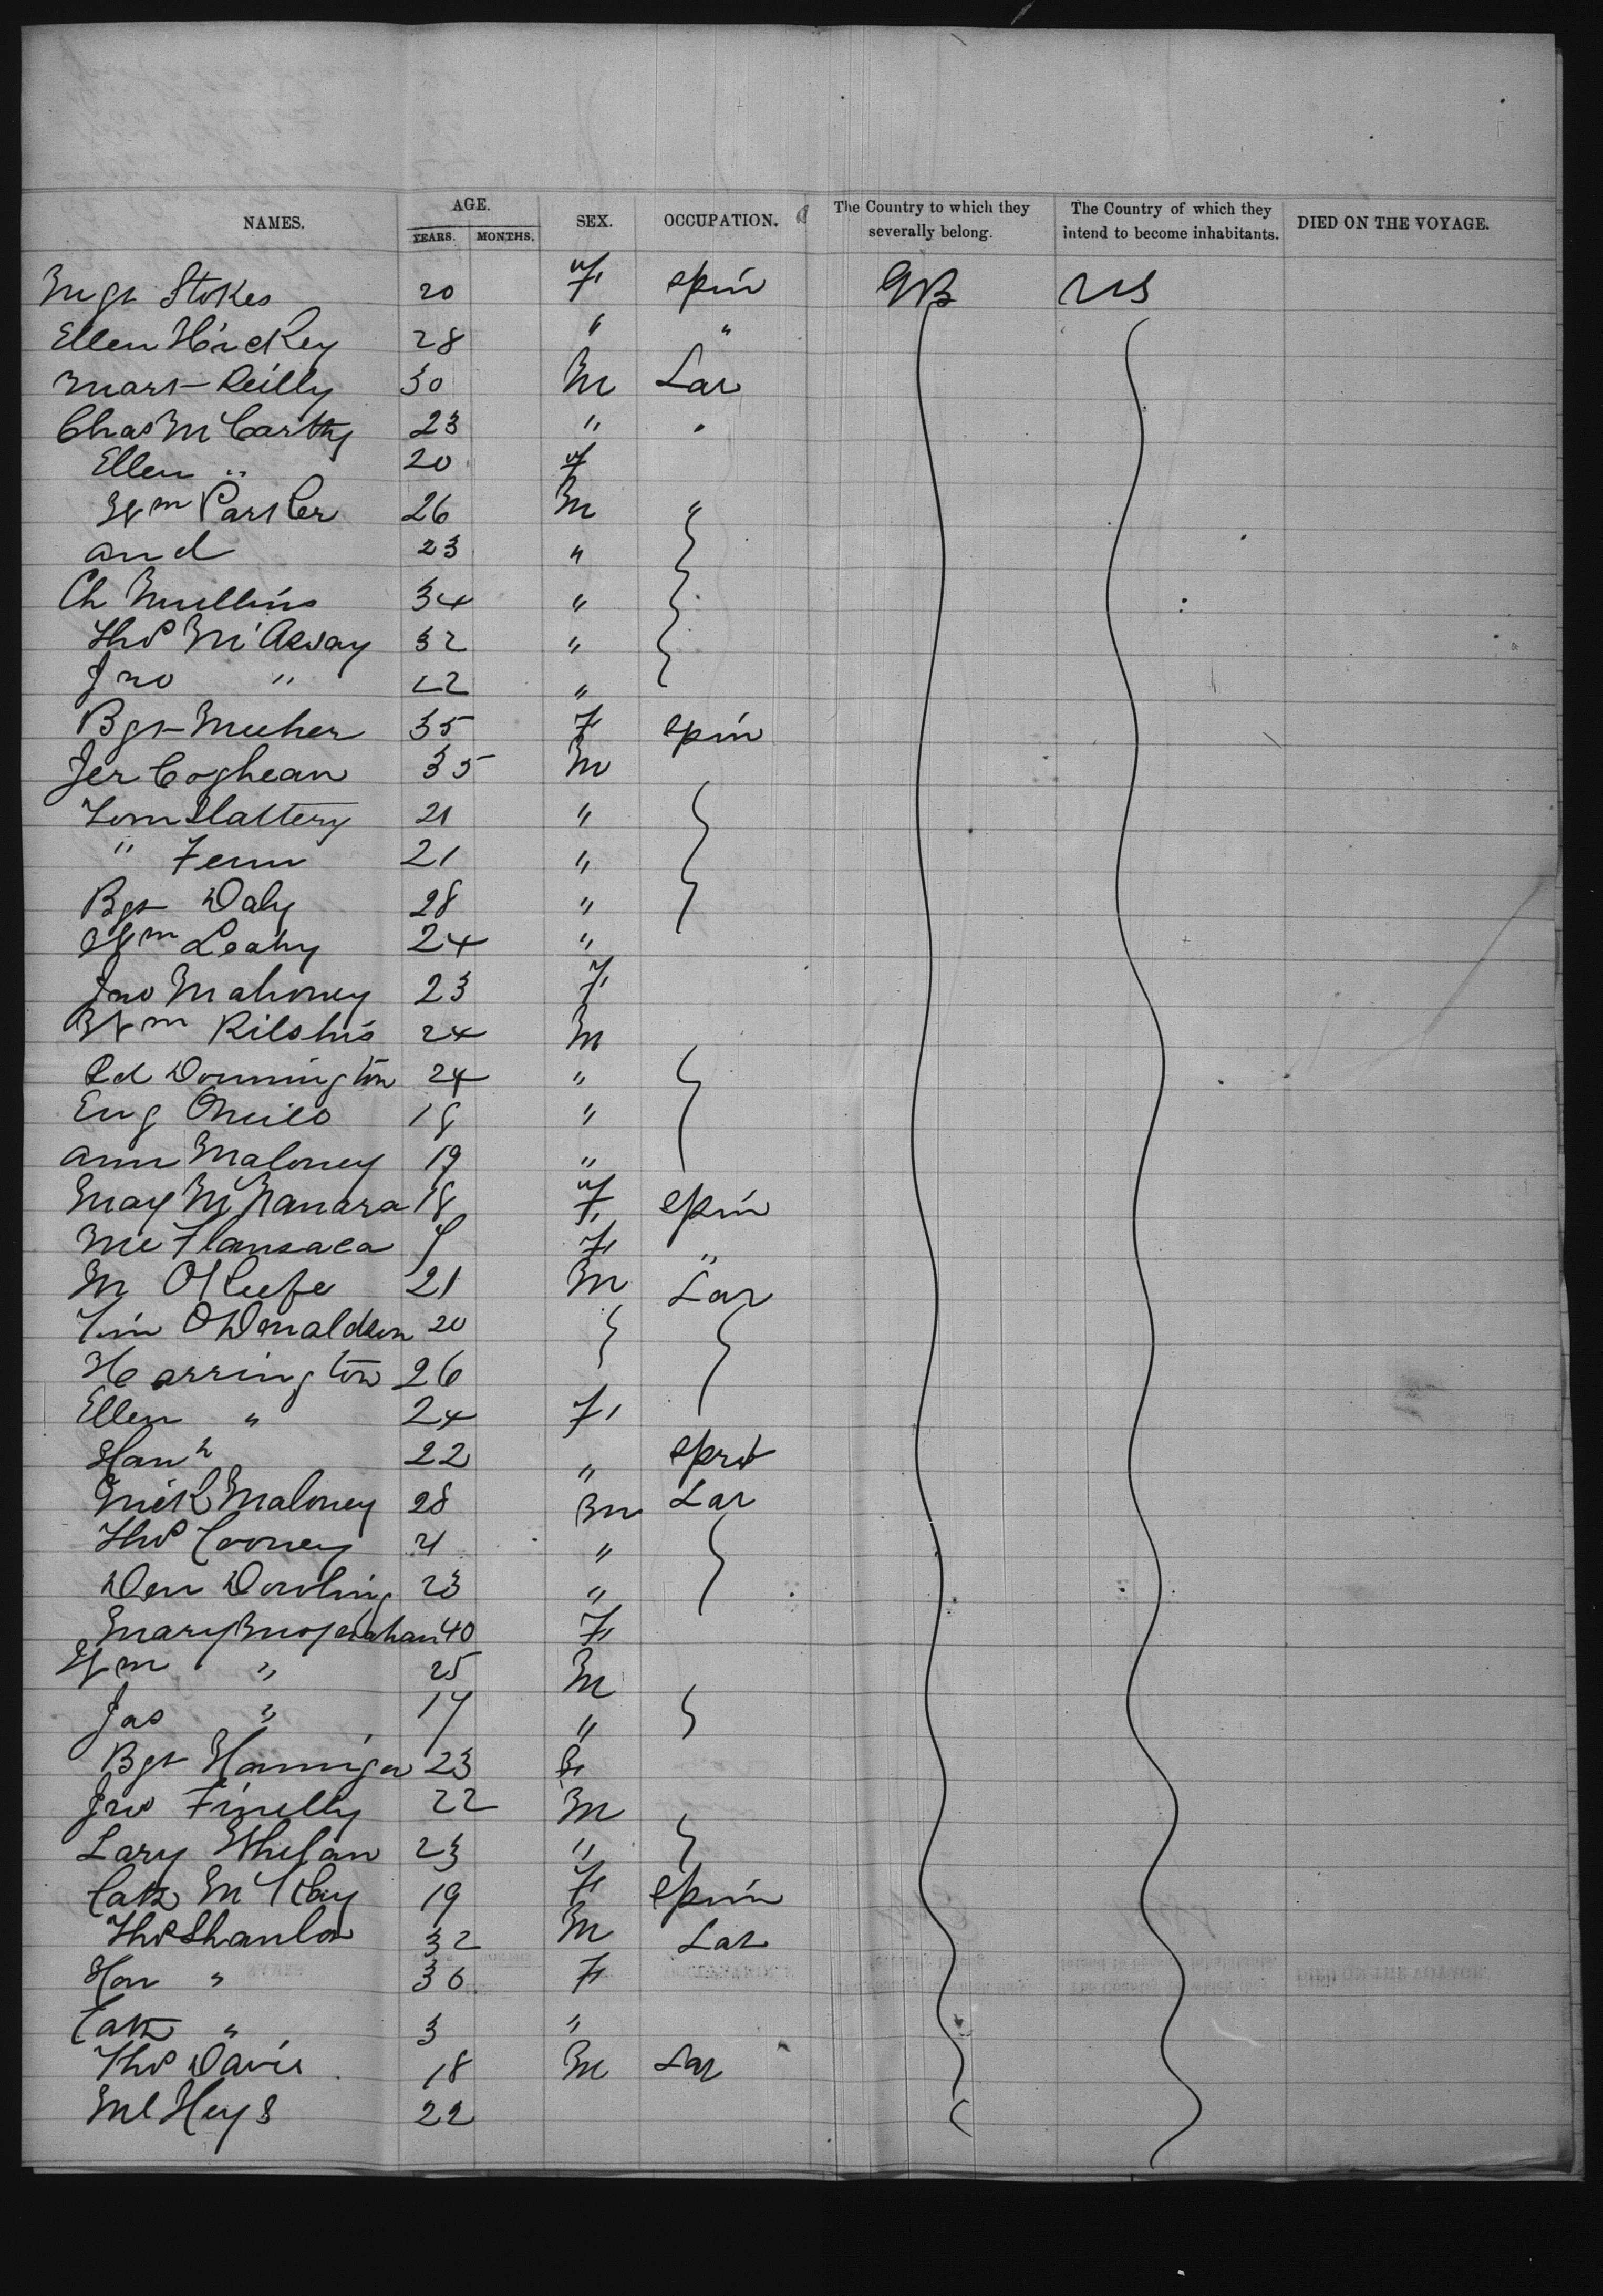 NAMES. AGE. YEARS. MONTHS. SEX. OCCUPATION. The Country to which they severally belong. The Country of which they intend to become inhabitants. DIED ON THE VOYAGE.
Mgt Stokes 20 F spin GB US
Ellen Hickey 28 " "
Mart Reilly 30 M Lar
Chas McCarthy 23 "
Ellen " 20 F
Wm Parker 26 M "
and 23 "
Ch Mullins 34 "
Thos McAvay 32 "
Jno " 22 "
Bgt Meeher 35 F spin
Jer Coghean 35 M
Tom Slattery 21 "
" Fenn 21 "
Bgt Daly 28 "
Wm Leahy 24 "
Jno Mahoney 23 F
Wm 24 M
Ed Donnington 24 "
Eug Oneill 18 "
Ann Maloney 19 "
May McNamara 18 F spin
F "
M OKeefe 21 M Lar
Tim ODonaldson 20
Harrington 26
Ellen " 24 F
Hanh 22 " spin
Mick Maloney 28 M Lar
Thos Cooney 21 "
Den Dowling 23 "
Mary 40 F
Wm " 25 M
Jas " 17 "
Bgt Hannigan 23 F
Jno Finelly 22 M
Lary Whelan 23 "
Cath McKay 19 F spin
Thos Shanlon 32 M Lar
Hon " 30 F
Cath " 3 "
Thos Davis 18 M Lar
Ml Heys 22